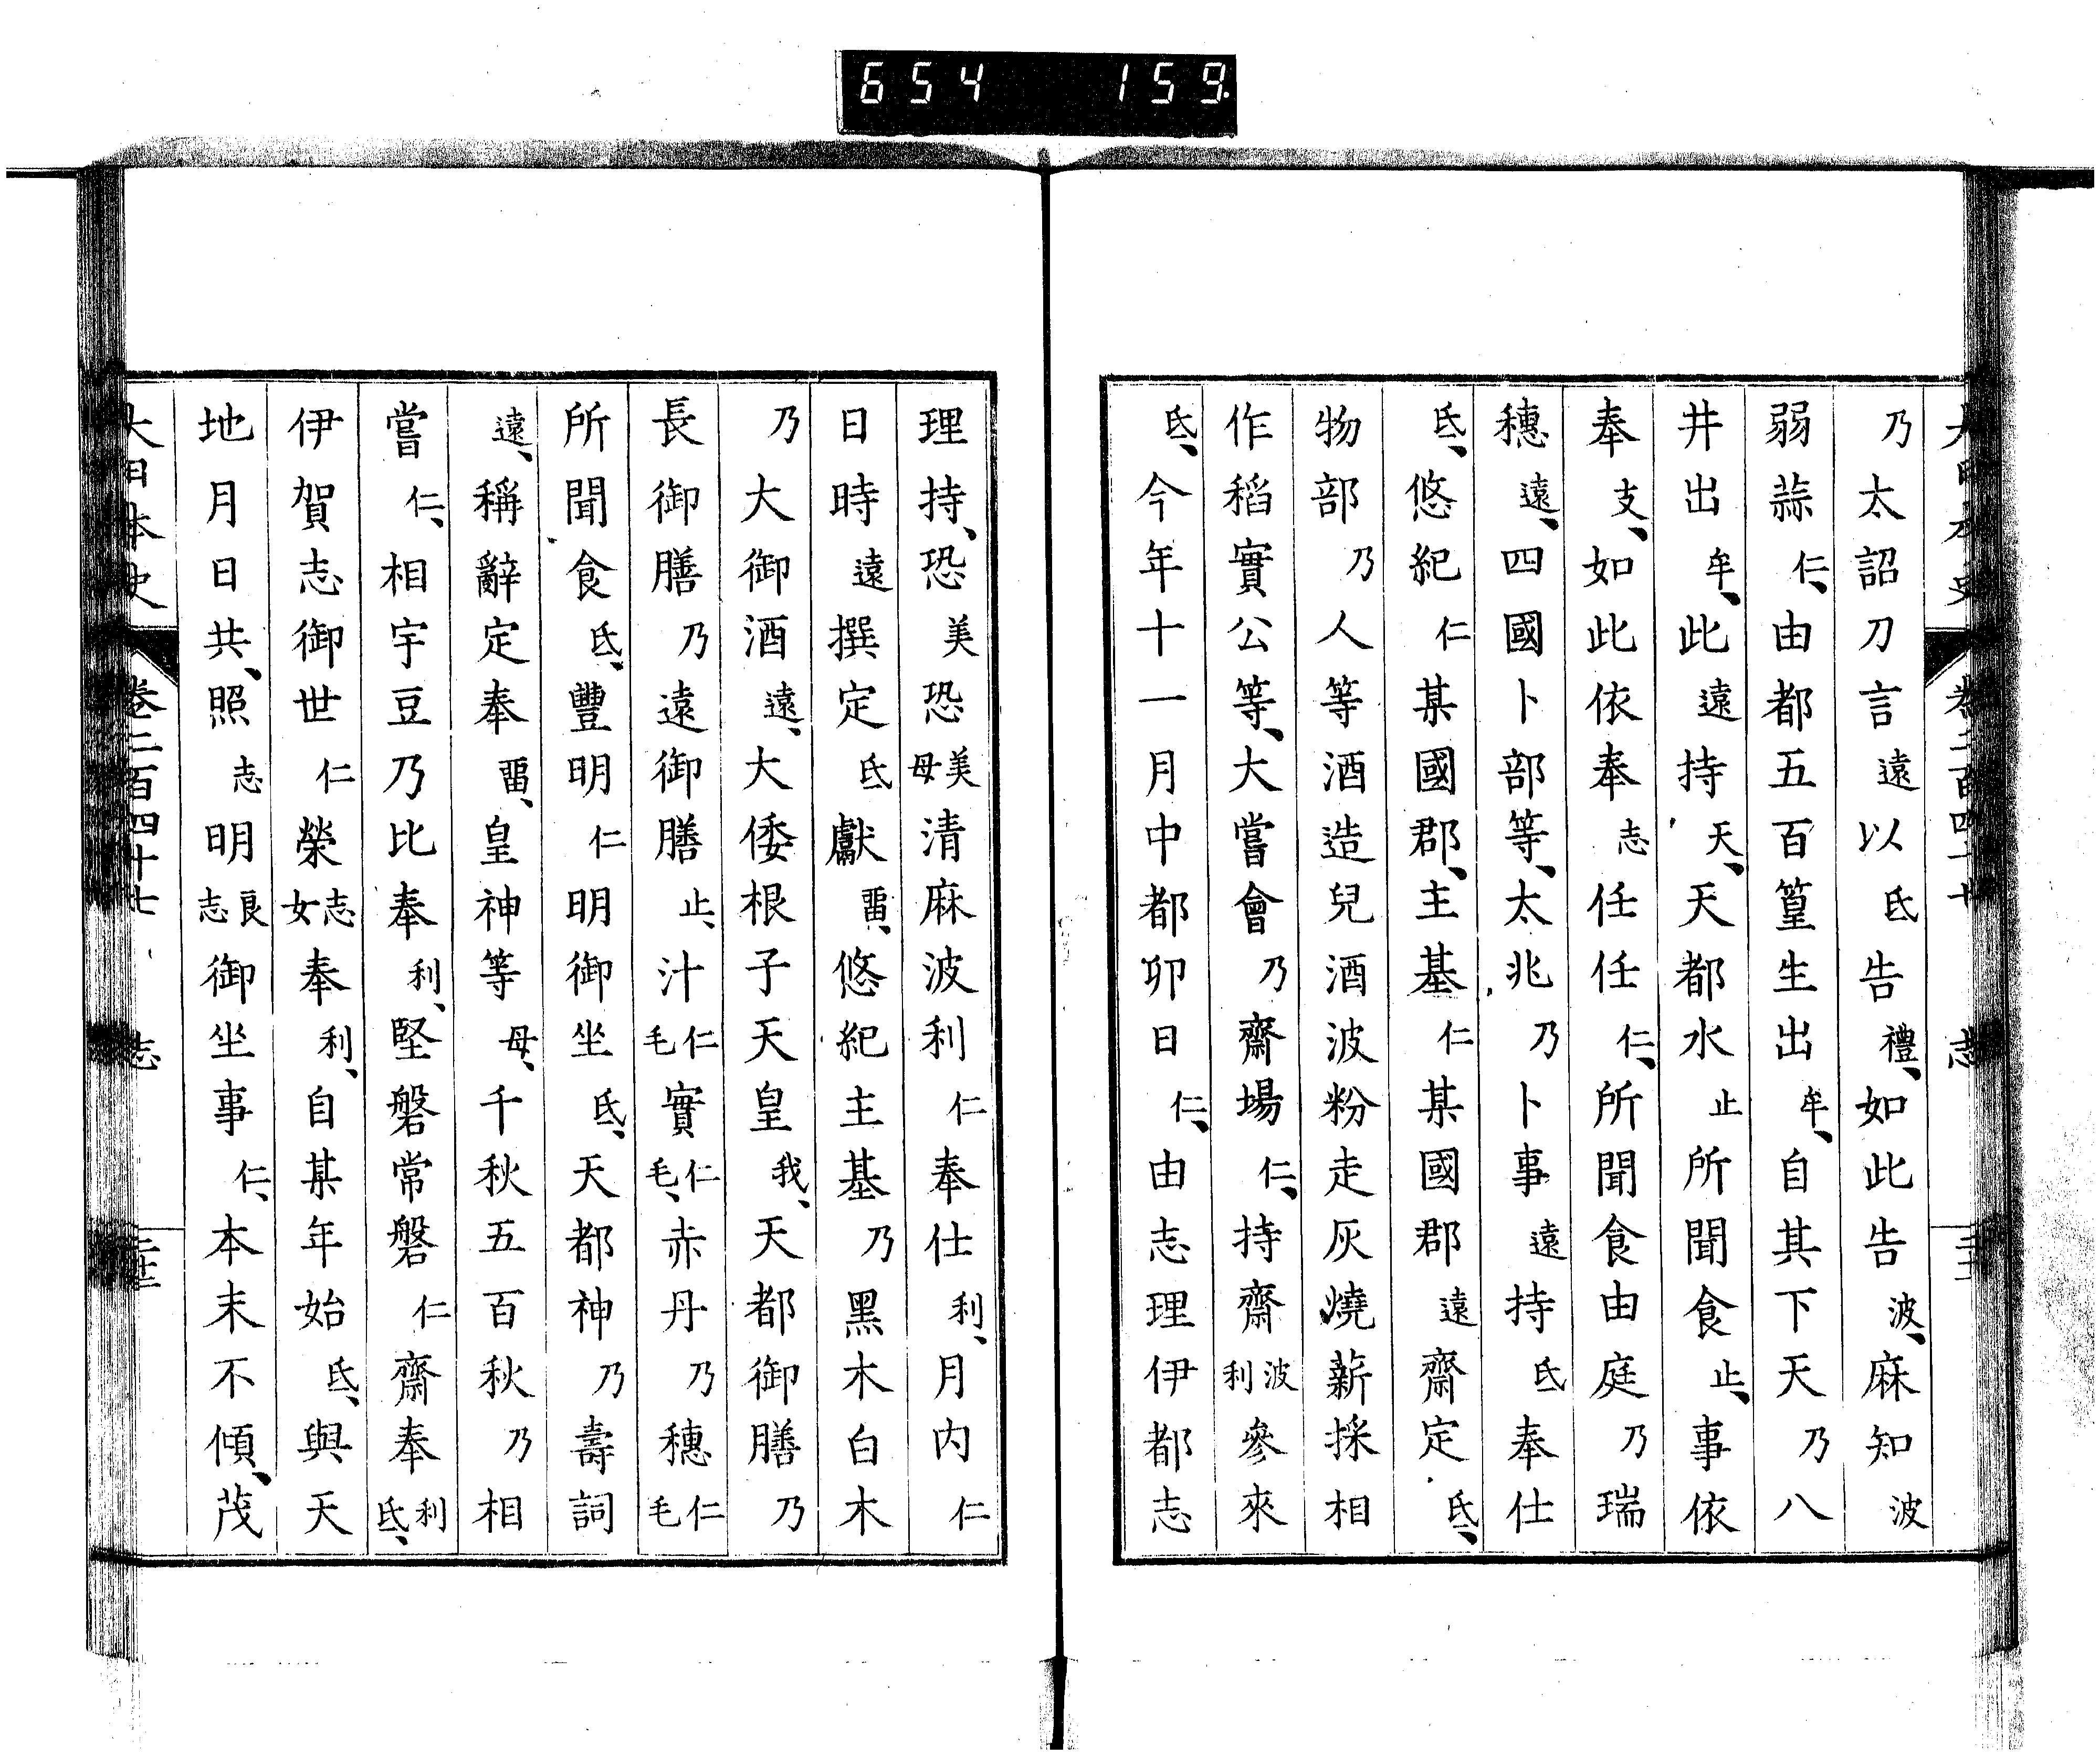 654 159
大日本史 卷二百四十七 志
乃太詔刀言遠以氐告禮、如此告波、麻知波
弱蒜仁、由都五百篁生出牟、自其下天乃八
井出牟、此遠持天、天都水止所聞食止、事依
奉支、如此依奉志任任仁、所聞食由庭乃瑞
穗遠、四國卜部等、太兆乃卜事遠持氐奉仕
氐、悠紀仁某國郡、主基仁某國郡遠齋定氐、
物部乃人等酒造兒酒波粉走灰燒薪採相
作稻實公等、大嘗會乃齋場仁、持齋波利參來
氐、今年十一月中都卯日仁、由志理伊都志
理持、恐美恐美母清麻波利仁奉仕利、月内仁
日時遠撰定氐獻畱、悠紀主基乃黑木白木
乃大御酒遠、大倭根子天皇我、天都御膳乃
長御膳乃遠御膳止、汁仁毛實仁毛、赤丹乃穗仁毛
所聞食氐、豐明仁明御坐氐、天都神乃壽詞
遠、稱辭定奉畱、皇神等母、千秋五百秋乃相
嘗仁、相宇豆乃比奉利、堅磐常磐仁齋奉利氐、
伊賀志御世仁榮志女奉利、自某年始氐、與天
地月日共、照志明良志御坐事仁、本末不傾、茂
大日本史 卷二百四十七 志